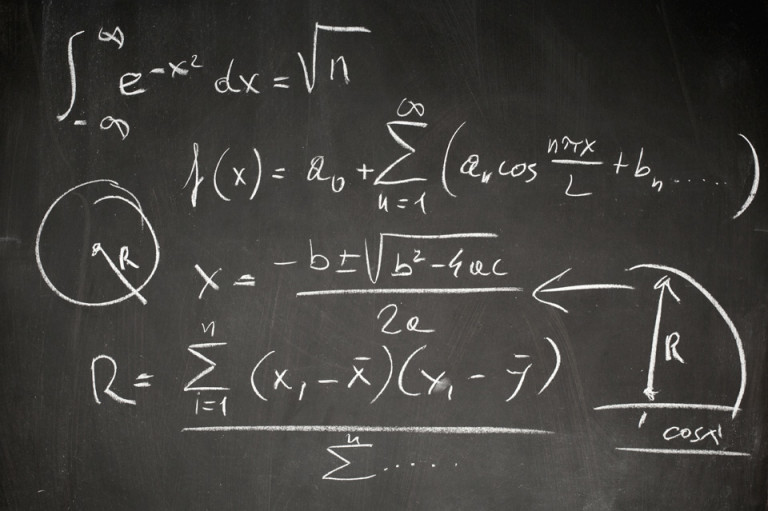 ∫_{-∞}^{∞} e^{-x²} dx = √n
f(x) = a₀ + ∑_{n=1}^{∞} (aₙ cos nπx/L + bₙ ......)
R
x = -b ± √(b² - 4ac) / 2a
R
R = ∑_{i=1}^{n} (x₁ - x̄)(y₁ - ȳ) / ∑ⁿ .....
cosx